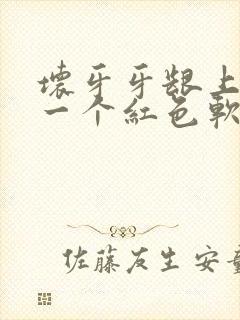 壞牙牙龈上
一个紅色軟
佐藤友生 安童